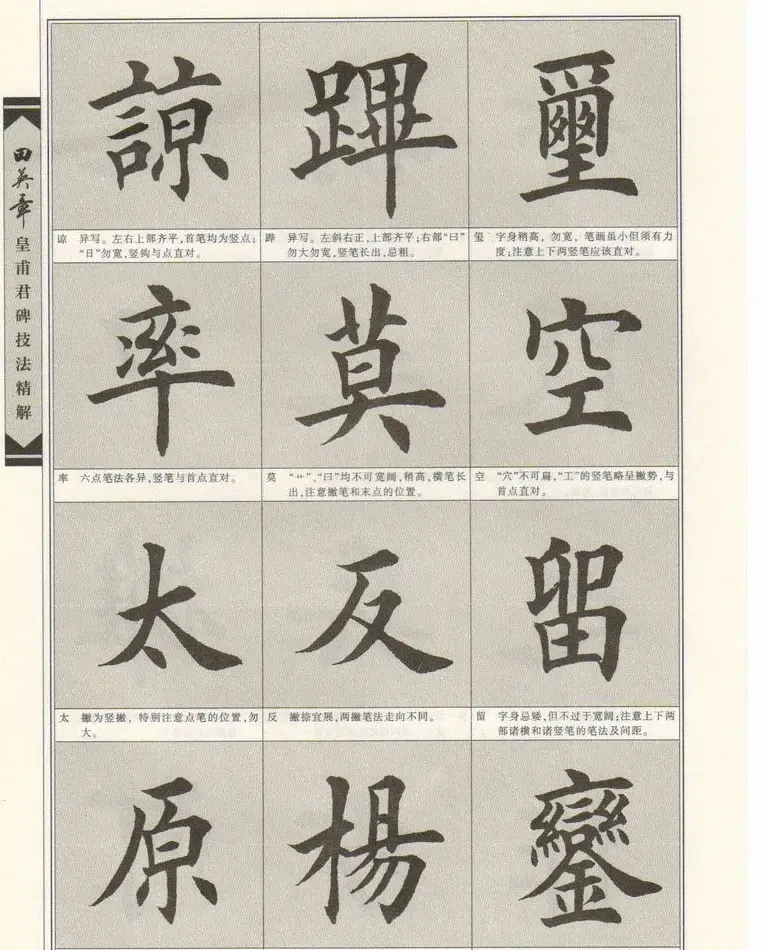 田英章皇甫君碑技法精解
諒
蹕
璽
谅 异写。左右上部齐平,首笔均为竖点;
“日”勿宽,竖钩与点直对。
跸 异写。左斜右正,上部齐平;右部“曰”
勿大勿宽,竖笔长出,忌粗。
玺 字身稍高,勿宽,笔画虽小但须有力
度;注意上下两竖笔应该直对。
率
莫
空
率 六点笔法各异,竖笔与首点直对。
莫 “艹”、“曰”均不可宽阔,稍高,横笔长
出,注意撇笔和末点的位置。
空 “穴”不可扁,“工”的竖笔略呈撇势,与
首点直对。
太
反
留
太 撇为竖撇,特别注意点笔的位置,勿
大。
反 撇捺宜展,两撇笔法走向不同。
留 字身忌矮,但不过于宽阔;注意上下两
部诸横和诸竖笔的笔法及间距。
原
楊
鑾